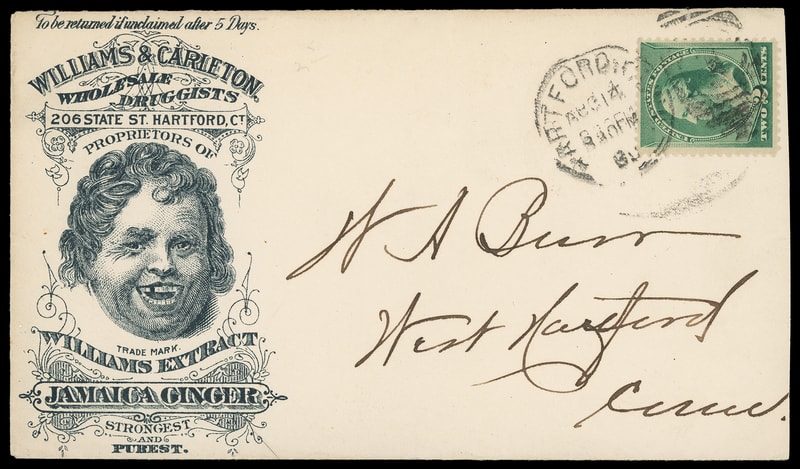 To be returned if unclaimed after 5 Days.
WILLIAMS & CARLETON,
WHOLESALE
DRUGGISTS
206 STATE ST. HARTFORD, CT
PROPRIETORS OF
TRADE MARK.
WILLIAMS EXTRACT
JAMAICA GINGER
STRONGEST
AND
PUREST.
HARTFORD, C
AUG 14
830PM
UNITED STATES POSTAGE
TWO 2 CENTS
W A Burr
West Hartford
Conn.